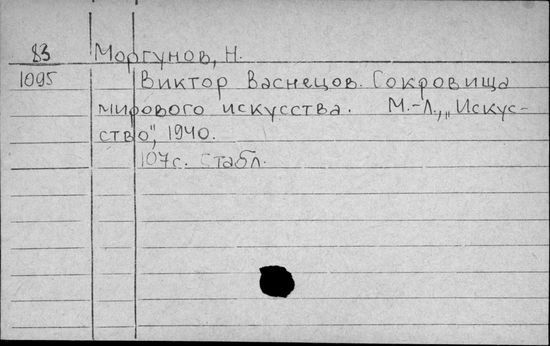 83 Моргунов, Н.
1095 Виктор Васнецов. Сокровища
мирового искусства. М.-Л., „Искус-
ство", 1940.
107с. с табл.